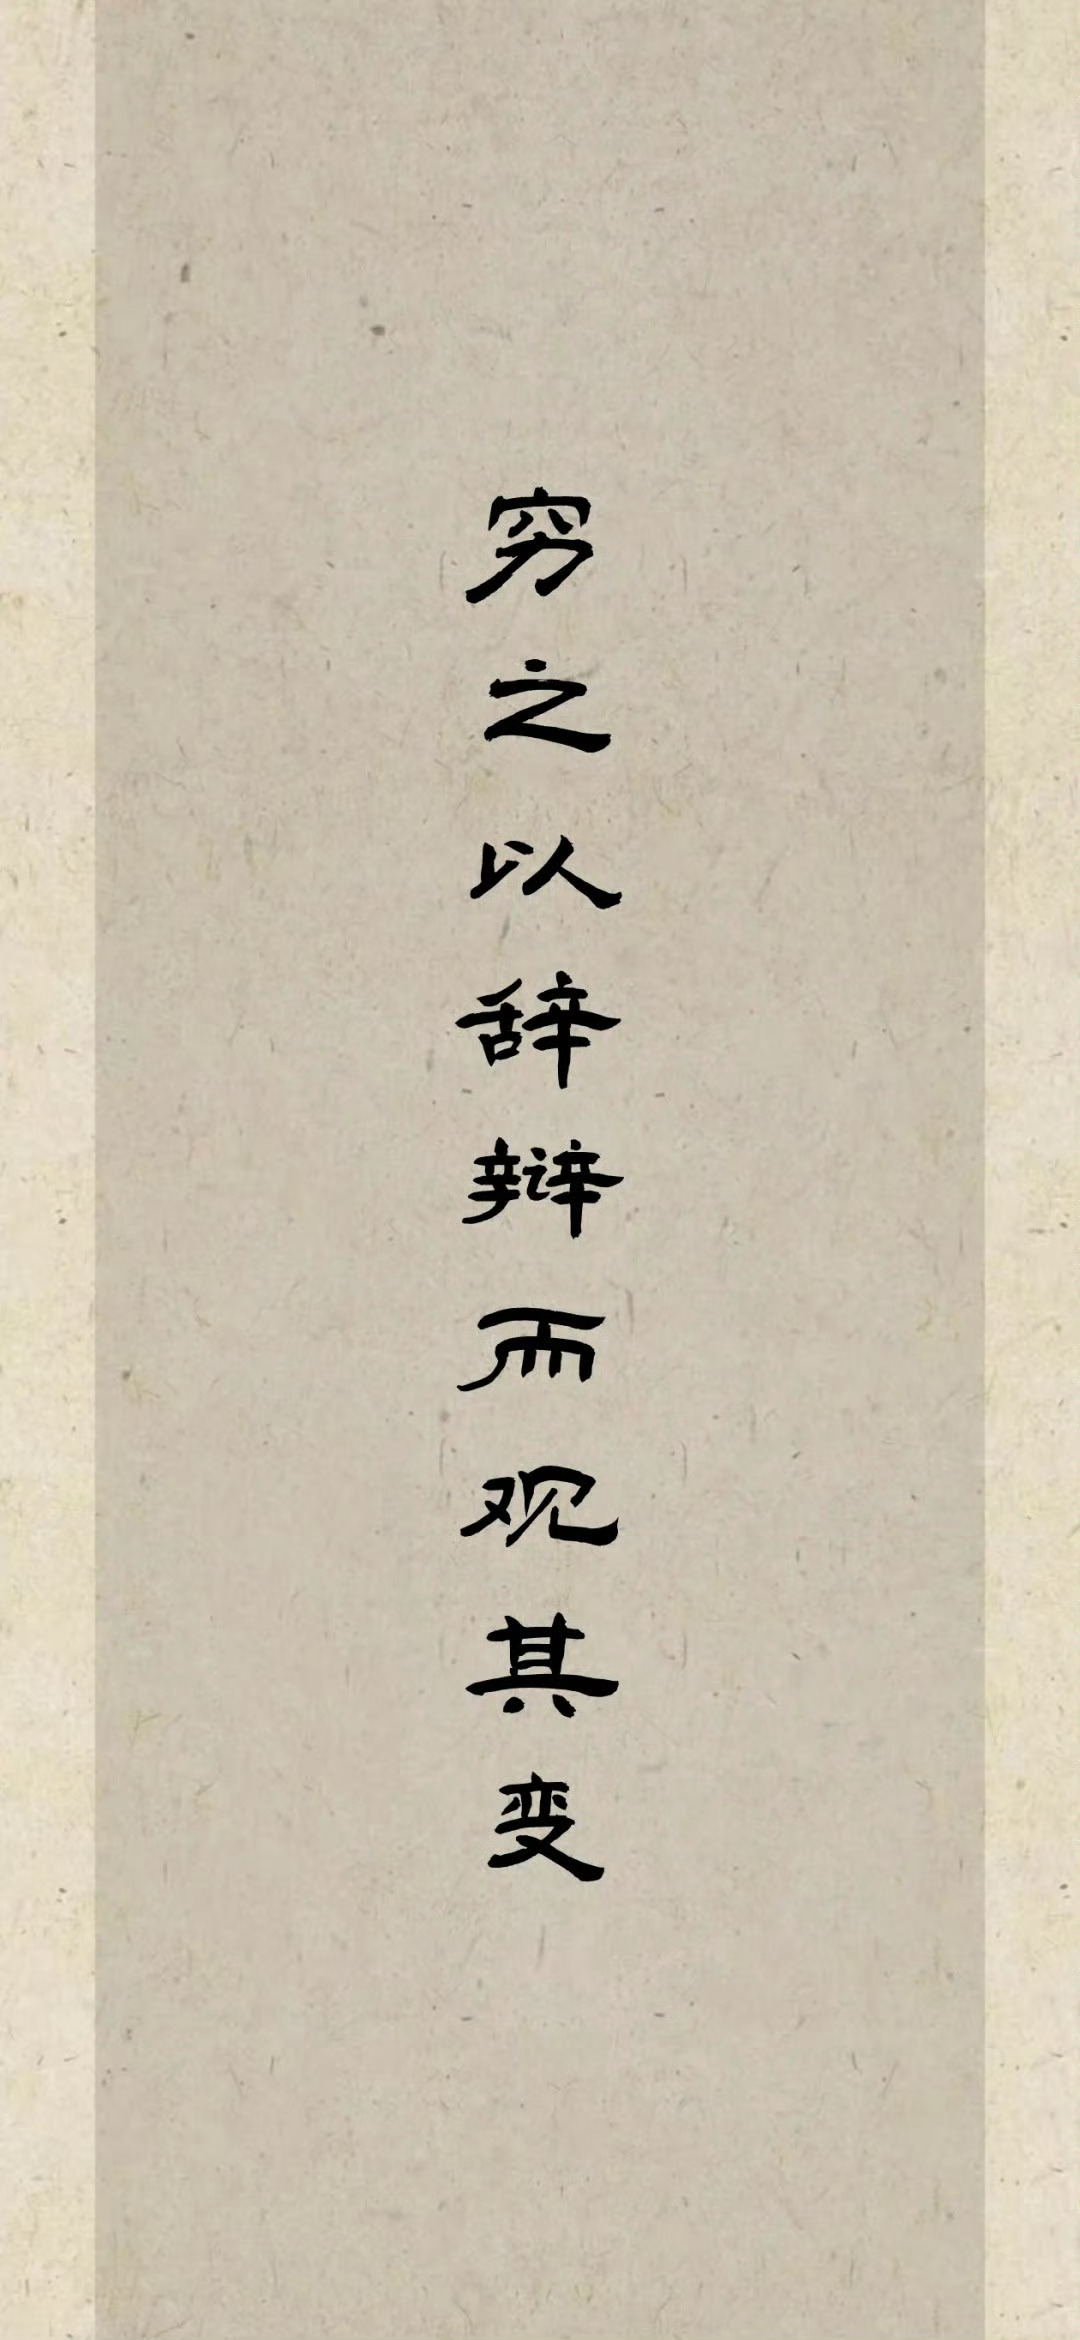 穷之以辞辩而观其变